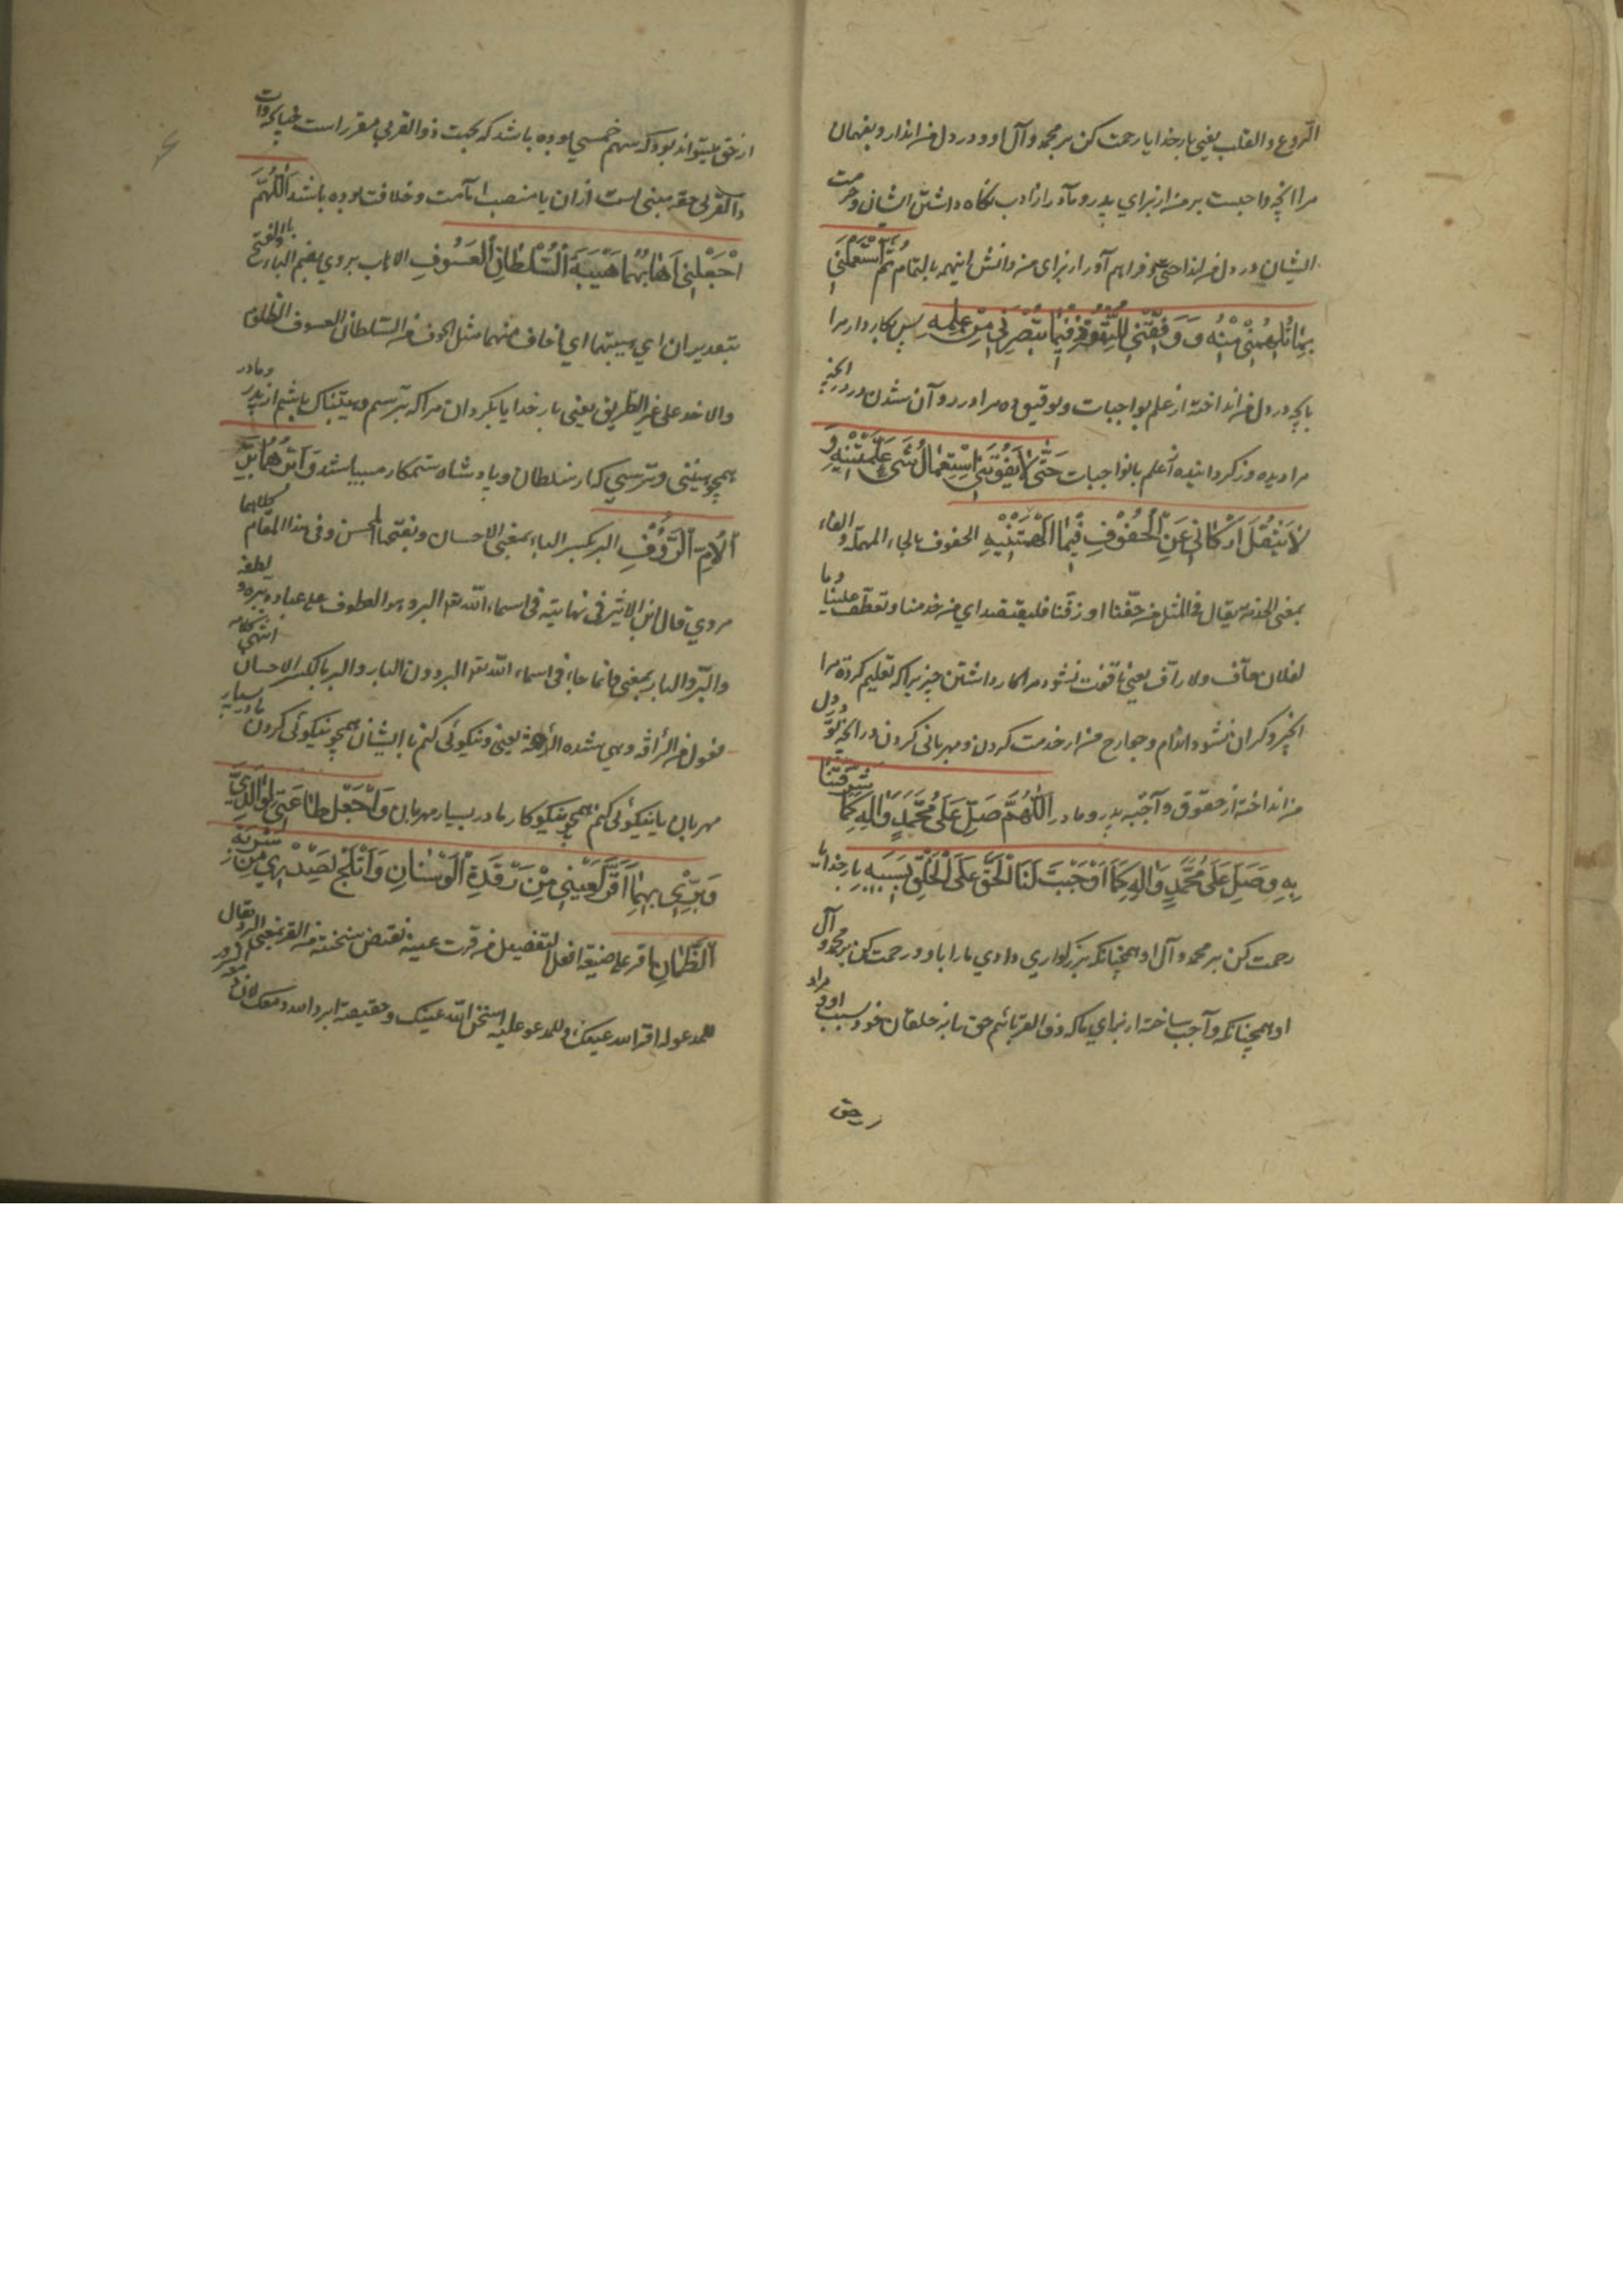 الروع والقلب یعنی بار خدایا رحمت کن بر محمد و آل او و در دل من انداز و بفهمان
مرا آنچه واجبست بر من از برای پدر و مادر از ادب نگاه داشتن ایشان و حرمت
ایشان در دل من انداختی و فراهم آور از برای من دانش اینهمه بالتمام ثُمَّ اسْتَعْمِلْنِی
بِمَا تُلْهِمُنِی مِنْهُ وَ وَفِّقْنِی لِلنُّفُوذِ فِیمَا تُبَصِّرُنِی مِنْ عِلْمِهِ پس بکار دار مرا
بآنچه در دل من انداخته از علم بواجبات و توفیق ده مرا در رو آن شدن در آنچه
مرا دیده ور گردانیده از علم بانواجبات حَتَّی لَا یَفُوتَنِی اسْتِعْمَالُ شَیْءٍ عَلَّمْتَنِیهِ وَ
لَا تَثْقُلَ أَرْکَانِی عَنِ الْحُفُوفِ فِیمَا أَلْهَمْتَنِیهِ الحفوف بالحاء المهملة والفاء
بمعنی الخدمة یقال فی المثل من حفّنا او رفّنا فلیقتصد ای من خدمنا و تعطّف علینا و ما
لفلان حاف ولا راف یعنی تا فوت نشود مرا بکار داشتن چیزیرا که تعلیم کرده مرا
آنچیز و گران نشود اندام و جوارح من از خدمت کردن و مهربانی کردن در آنچه تو در دل
من انداخته از حقوق واجبه پدر و مادر اَللّٰهُمَّ صَلِّ عَلَی مُحَمَّدٍ وَ آلِهِ کَمَا شَرَّفْتَنَا
بِهِ وَ صَلِّ عَلَی مُحَمَّدٍ وَ آلِهِ کَمَا أَوْجَبْتَ لَنَا الْحَقَّ عَلَی الْخَلْقِ بِسَبَبِهِ بار خدایا
رحمت کن بر محمد و آل او همچنانکه بزرگواری دادی ما را باو و رحمت کن بر محمد و آل
او همچنانکه واجب ساخته از برای ما که ذوالقربائیم حق ما بر خلقان خود بسبب او و مراد
حق
از حق میتواند بود که سهم خمسی بوده باشد که بجهت ذوالقربی مقرر است چنانچه وآت
ذا القربی حقه مبنی است از آن یا منصب امامت و خلافت بوده باشد اَللّٰهُمَّ
اجْعَلْنِی أَهَابُهُمَا هَیْبَةَ السُّلْطَانِ الْعَسُوفِ الاهاب یروی بضم الباء و بالفتح
بتقدیر ان ای هیبتهما ای اخاف منهما مثل الخوف من السلطان العسوف الظلوم
والاخذ علی غیر الطریق یعنی بار خدایا بگردان مرا که بترسم و هیبتناک باشم از پدر و مادر
همچو هیبتی و ترسی که از سلطان و پادشاه ستمکار میباشد وَ أَبَرُّهُمَا بِرَّ
الْأُمِّ الرَّءُوفِ البر بکسر الباء بمعنی الاحسان و بفتحها المحسن و فی هذا المقام کلاهما
مروی قال ابن الاثیر فی نهایته فی اسماء الله تعالی البر و هو العطوف علی عباده ببره و لطفه
والبر والبار بمعنی و انما جاء فی اسماء الله تعالی البر دون البار والبر بالکسر الاحسان انتهی کلامه
فعول من الرأفة و هی شدة الرحمة یعنی و نیکوئی کنم با ایشان همچو نیکوئی کردن مادر بسیار
مهربان یا نیکوئی کنم همچو نیکوکار مادر بسیار مهربان وَ اجْعَلْ طَاعَتِی لِوَالِدَیَّ
وَ بِرِّی بِهِمَا أَقَرَّ لِعَیْنِی مِنْ رَقْدَةِ الْوَسْنَانِ وَ أَثْلَجَ لِصَدْرِی مِنْ شَرْبَةِ
الظَّمْآنِ اقر علی صیغة افعل التفضیل من قرت عینه نقیض سخنته من القر بمعنی البرد یقال
للمدعو له اقر الله عینک و للمدعو علیه اسخن الله عینک و حقیقته ابرد الله دمعک لان